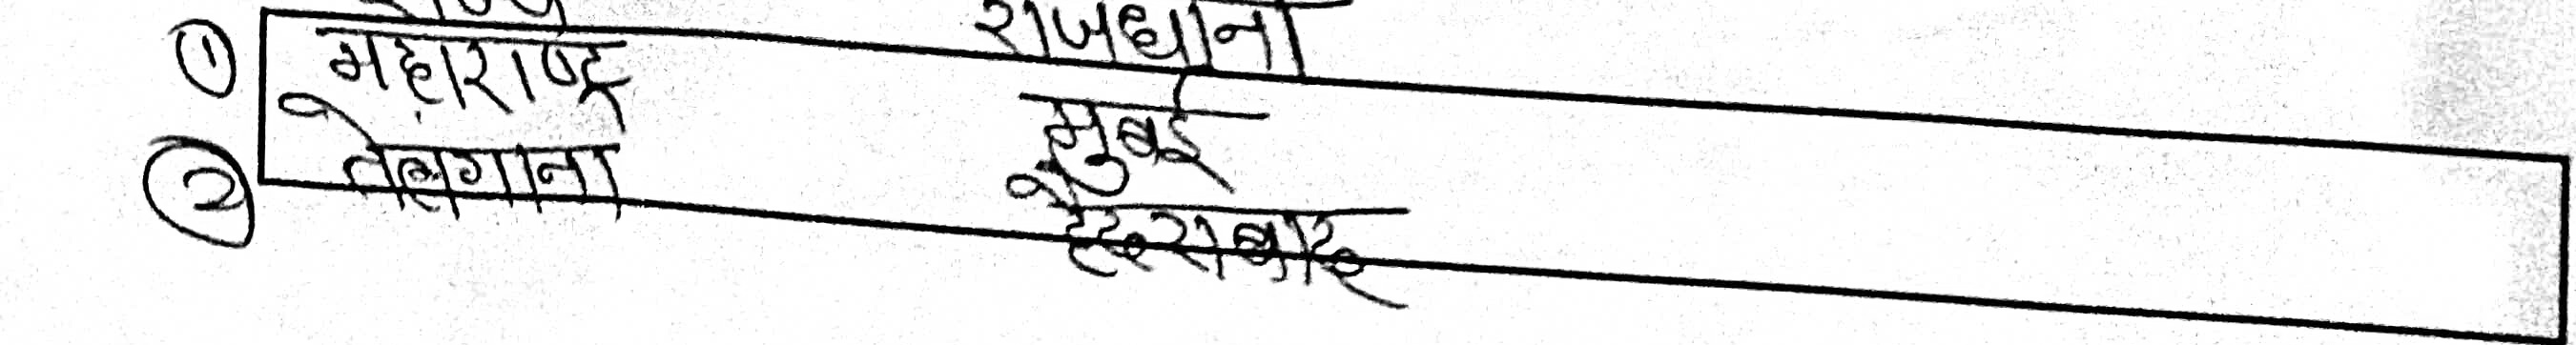 राज्य राजधानी
① महाराष्ट्र मुबई
② तेलगाना हैदराबाद